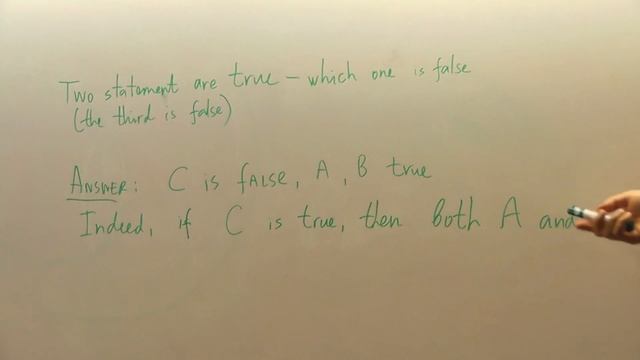 Two statement are true – which one is false
(the third is false)
ANSWER: C is fALSE, A, B true
Indeed, if C is true, then both A and